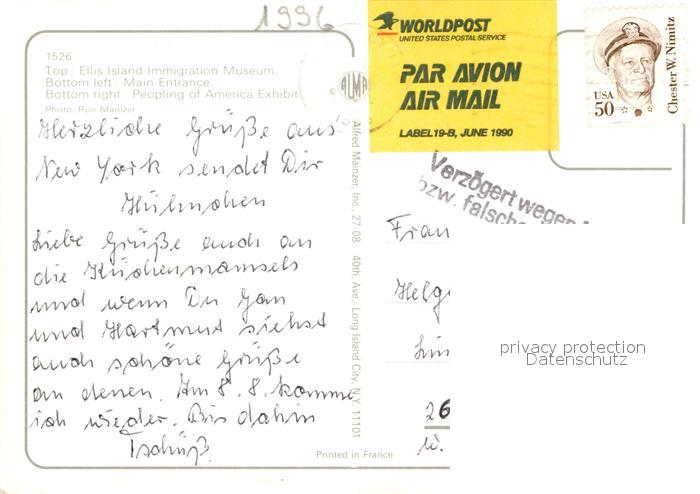 1996
1526
Top : Ellis Island Immigration Museum.
Bottom left : Main Entrance.
Bottom right : Peopling of America Exhibit.
Photo, Ron Mainzer
Herzliche Grüße aus
New York sendet Dir
Hühnchen
Liebe Grüße auch an
die Küchenmamsels
und wenn Du Gan
und Hartmut siehst
auch schöne Grüße
an denen. Am 8. 8. komme
ich wieder. Bis dahin
Tschüß.
ALMA
Alfred Mainzer, Inc., 27-08 40th, Ave., Long Island City, N.Y. 11101
Printed in France
WORLDPOST
UNITED STATES POSTAL SERVICE
PAR AVION
AIR MAIL
LABEL 19-B, JUNE 1990
USA
50
Chester W. Nimitz
Verzögert wegen
bzw. falsche
Frau
Helg
26
W.
privacy protection
Datenschutz